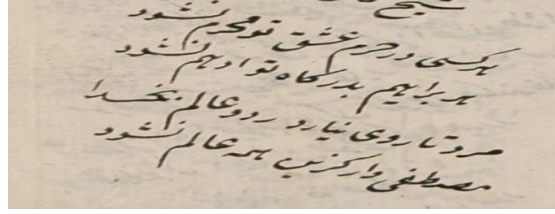 شیخ
هرکسی در حرم عشق تو محرم نشود
هر براهیم بدرگاه تو ادهم نشود
مرد تا روی نیارد ز دو عالم بخدا
مصطفی وار گزین همه عالم نشود